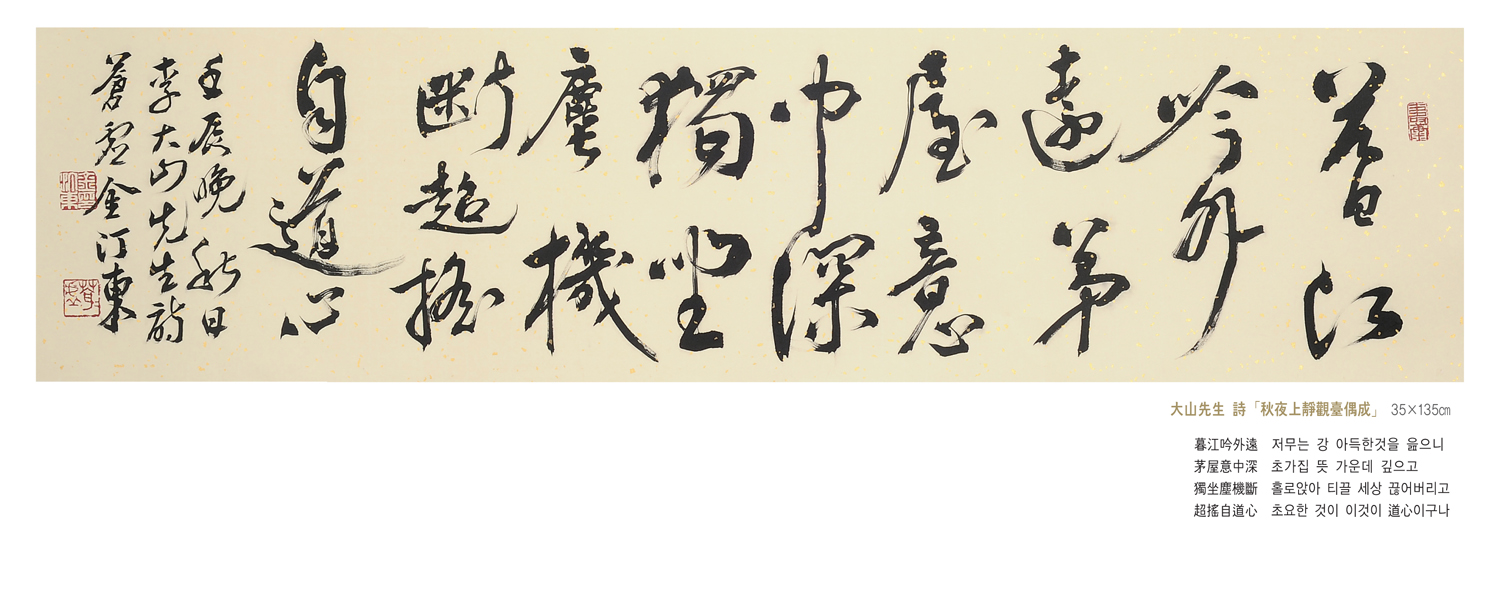 暮江
吟外
遠茅
屋意
中深
獨坐
塵機
断超搖
自道心
壬辰晩秋日
李大山先生詩
蒼 金汀東
大山先生 詩「秋夜上靜觀臺偶成」 35×135㎝
暮江吟外遠 저무는 강 아득한것을 읊으니
茅屋意中深 초가집 뜻 가운데 깊으고
獨坐塵機斷 홀로앉아 티끌 세상 끊어버리고
超搖自道心 초요한 것이 이것이 道心이구나